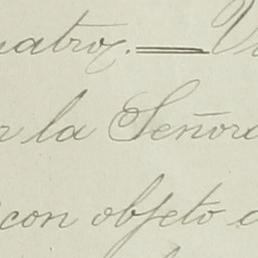 uatro. = V
r la Señora
con objeto d